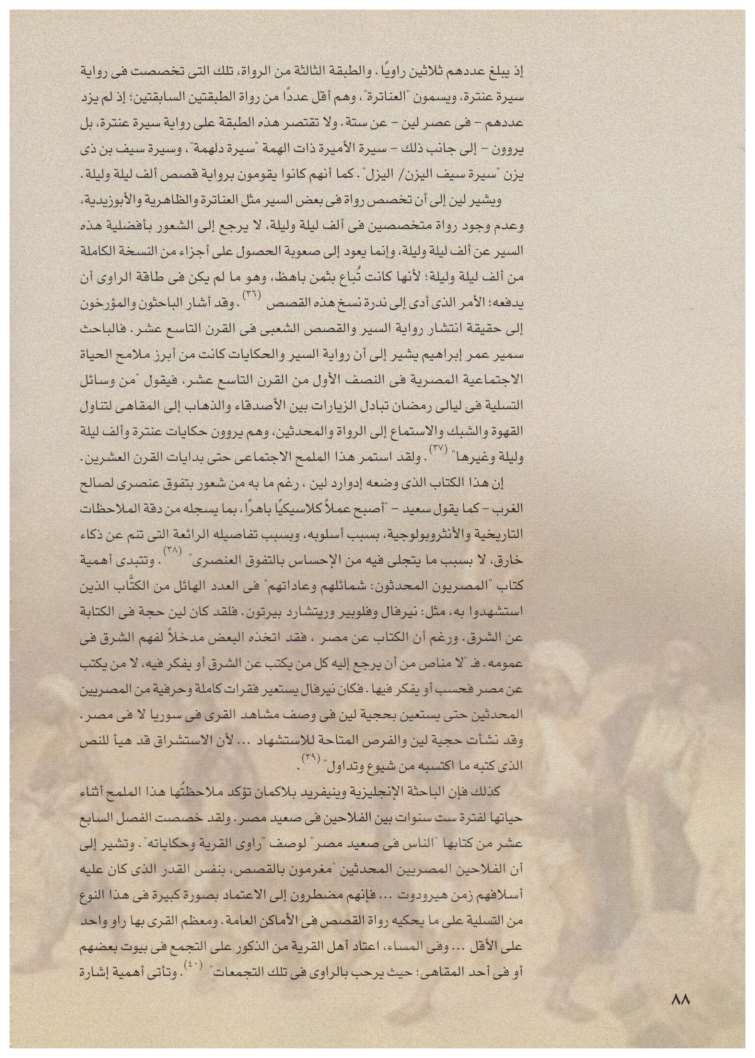 إذ يبلغ عددهم ثلاثين راويًا. والطبقة الثالثة من الرواة، تلك التى تخصصت فى رواية
سيرة عنترة، ويسمون "العناترة"، وهم أقل عددًا من رواة الطبقتين السابقتين؛ إذ لم يزد
عددهم – فى عصر لين – عن ستة. ولا تقتصر هذه الطبقة على رواية سيرة عنترة، بل
يروون – إلى جانب ذلك – سيرة الأميرة ذات الهمة "سيرة دلهمة"، وسيرة سيف بن ذى
يزن "سيرة سيف اليزن/ اليزل". كما أنهم كانوا يقومون برواية قصص ألف ليلة وليلة.
ويشير لين إلى أن تخصص رواة فى بعض السير مثل العناترة والظاهرية والأبوزيدية،
وعدم وجود رواة متخصصين فى ألف ليلة وليلة، لا يرجع إلى الشعور بأفضلية هذه
السير عن ألف ليلة وليلة، وإنما يعود إلى صعوبة الحصول على أجزاء من النسخة الكاملة
من ألف ليلة وليلة؛ لأنها كانت تُباع بثمن باهظ، وهو ما لم يكن فى طاقة الراوى أن
يدفعه؛ الأمر الذى أدى إلى ندرة نسخ هذه القصص (٣٦). وقد أشار الباحثون والمؤرخون
إلى حقيقة انتشار رواية السير والقصص الشعبى فى القرن التاسع عشر. فالباحث
سمير عمر إبراهيم يشير إلى أن رواية السير والحكايات كانت من أبرز ملامح الحياة
الاجتماعية المصرية فى النصف الأول من القرن التاسع عشر، فيقول "من وسائل
التسلية فى ليالى رمضان تبادل الزيارات بين الأصدقاء والذهاب إلى المقاهى لتناول
القهوة والشبك والاستماع إلى الرواة والمحدثين، وهم يروون حكايات عنترة وألف ليلة
وليلة وغيرها" (٣٧). ولقد استمر هذا الملمح الاجتماعى حتى بدايات القرن العشرين.
إن هذا الكتاب الذى وضعه إدوارد لين ، رغم ما به من شعور بتفوق عنصرى لصالح
الغرب – كما يقول سعيد – "أصبح عملاً كلاسيكيًا باهرًا، بما يسجله من دقة الملاحظات
التاريخية والأنثروبولوجية، بسبب أسلوبه، وبسبب تفاصيله الرائعة التى تنم عن ذكاء
خارق، لا بسبب ما يتجلى فيه من الإحساس بالتفوق العنصرى" (٣٨). وتتبدى أهمية
كتاب "المصريون المحدثون: شمائلهم وعاداتهم" فى العدد الهائل من الكتَّاب الذين
استشهدوا به، مثل: نيرفال وفلوبير وريتشارد بيرتون. فلقد كان لين حجة فى الكتابة
عن الشرق. ورغم أن الكتاب عن مصر ، فقد اتخذه البعض مدخلاً لفهم الشرق فى
عمومه. فـ "لا مناص من أن يرجع إليه كل من يكتب عن الشرق أو يفكر فيه، لا من يكتب
عن مصر فحسب أو يفكر فيها. فكان نيرفال يستعير فقرات كاملة وحرفية من المصريين
المحدثين حتى يستعين بحجية لين فى وصف مشاهد القرى فى سوريا لا فى مصر.
وقد نشأت حجية لين والفرص المتاحة للاستشهاد ... لأن الاستشراق قد هيأ للنص
الذى كتبه ما اكتسبه من شيوع وتداول" (٣٩).
كذلك فإن الباحثة الإنجليزية وينيفريد بلاكمان تؤكد ملاحظتُها هذا الملمح أثناء
حياتها لفترة ست سنوات بين الفلاحين فى صعيد مصر. ولقد خصصت الفصل السابع
عشر من كتابها "الناس فى صعيد مصر" لوصف "راوى القرية وحكاياته". وتشير إلى
أن الفلاحين المصريين المحدثين "مغرمون بالقصص، بنفس القدر الذى كان عليه
أسلافهم زمن هيرودوت ... فإنهم مضطرون إلى الاعتماد بصورة كبيرة فى هذا النوع
من التسلية على ما يحكيه رواة القصص فى الأماكن العامة. ومعظم القرى بها راو واحد
على الأقل ... وفى المساء، اعتاد أهل القرية من الذكور على التجمع فى بيوت بعضهم
أو فى أحد المقاهى؛ حيث يرحب بالراوى فى تلك التجمعات" (٤٠). وتأتى أهمية إشارة
٨٨